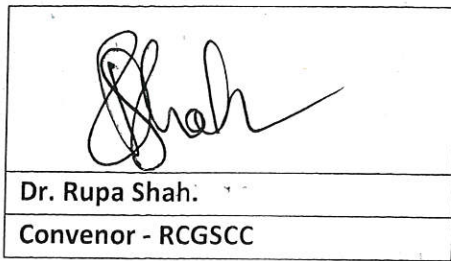 Shah
Dr. Rupa Shah.
Convenor - RCGSCC